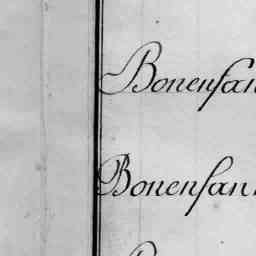 Bonenfan
Bonenfan